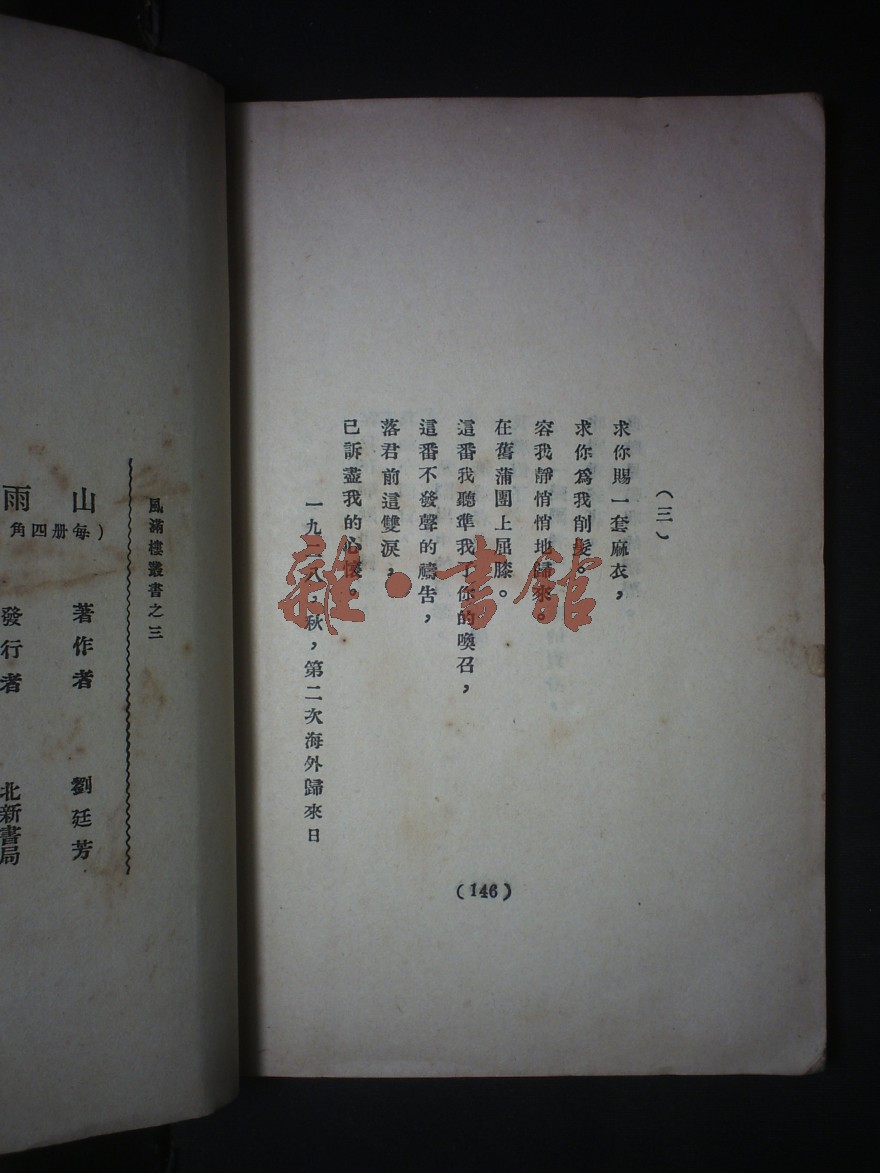 (三)
求你賜一套麻衣，
求你為我削髮。
容我靜悄悄地歸來。
在舊蒲團上屈膝。
這番我聽準我了你的喚召，
這番不發聲的禱告，
落君前這雙淚，
已訴盡我的心懷。
一九二八，秋，第二次海外歸來日
(146)
風滿樓叢書之三
山雨
(每册四角
著作者 劉廷芳
發行者 北新書局
雜·書館